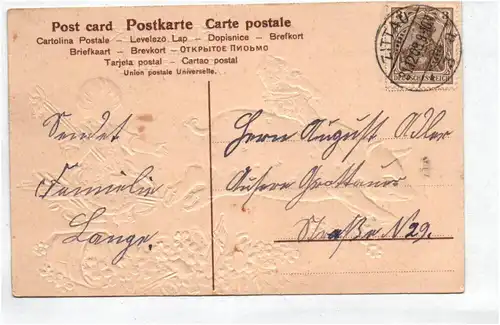 Post card Postkarte Carte postale
Cartolina Postale – Levelező Lap – Dopisnice – Brefkort
Briefkaart – Brevkort – ОТКРЫТОЕ ПИСЬМО
Tarjeta postal – Cartao postal
Union postale Universelle.
3
ZITTAU
DEUTSCHES REICH
Sendet
Familie
Lange.
Herrn August Adler
Äußere Grottauer
Straße N 29.